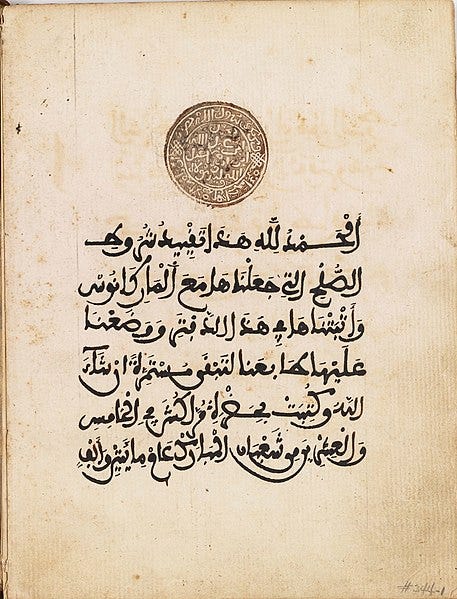 الحمد لله هذا تقييد شروط
الصلح التي جعلناها مع الماركانوس
وأثبتناها في هذا الدفتر ووضعنا
عليها طابعنا لتبقى مستمرة إن شاء
الله وكتبت بحضرة مراكش في الخامس
والعشرين من شعبان المبارك عام مايتين وألف
#244-1